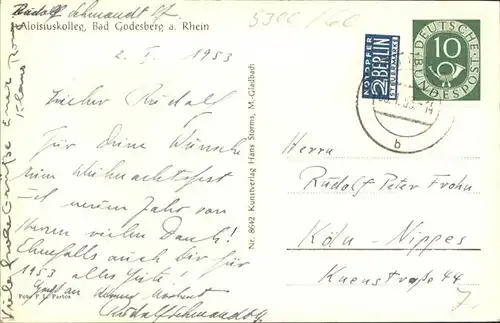 Rudolf Schmandt
Aloisiuskolleg, Bad Godesberg a. Rhein
2. I. 1953
Lieber Rudolf
Für Deine Wünsche
zum Weihnachtsfest
und neuem Jahr von
Herzen vielen Dank!
Ebenfalls auch Dir für
1953 alles Gute!
Gruß an
Rudolf Schmandt
Viele frohe Grüße
Nr. 8642 Kunstverlag Hans Storms, M.-Gladbach
NOTOPFER
2 BERLIN
STEUERMARKE
DEUTSCHE BUNDESPOST
10
b
Herrn
Rudolf Peter Frohn
Köln-Nippes
44